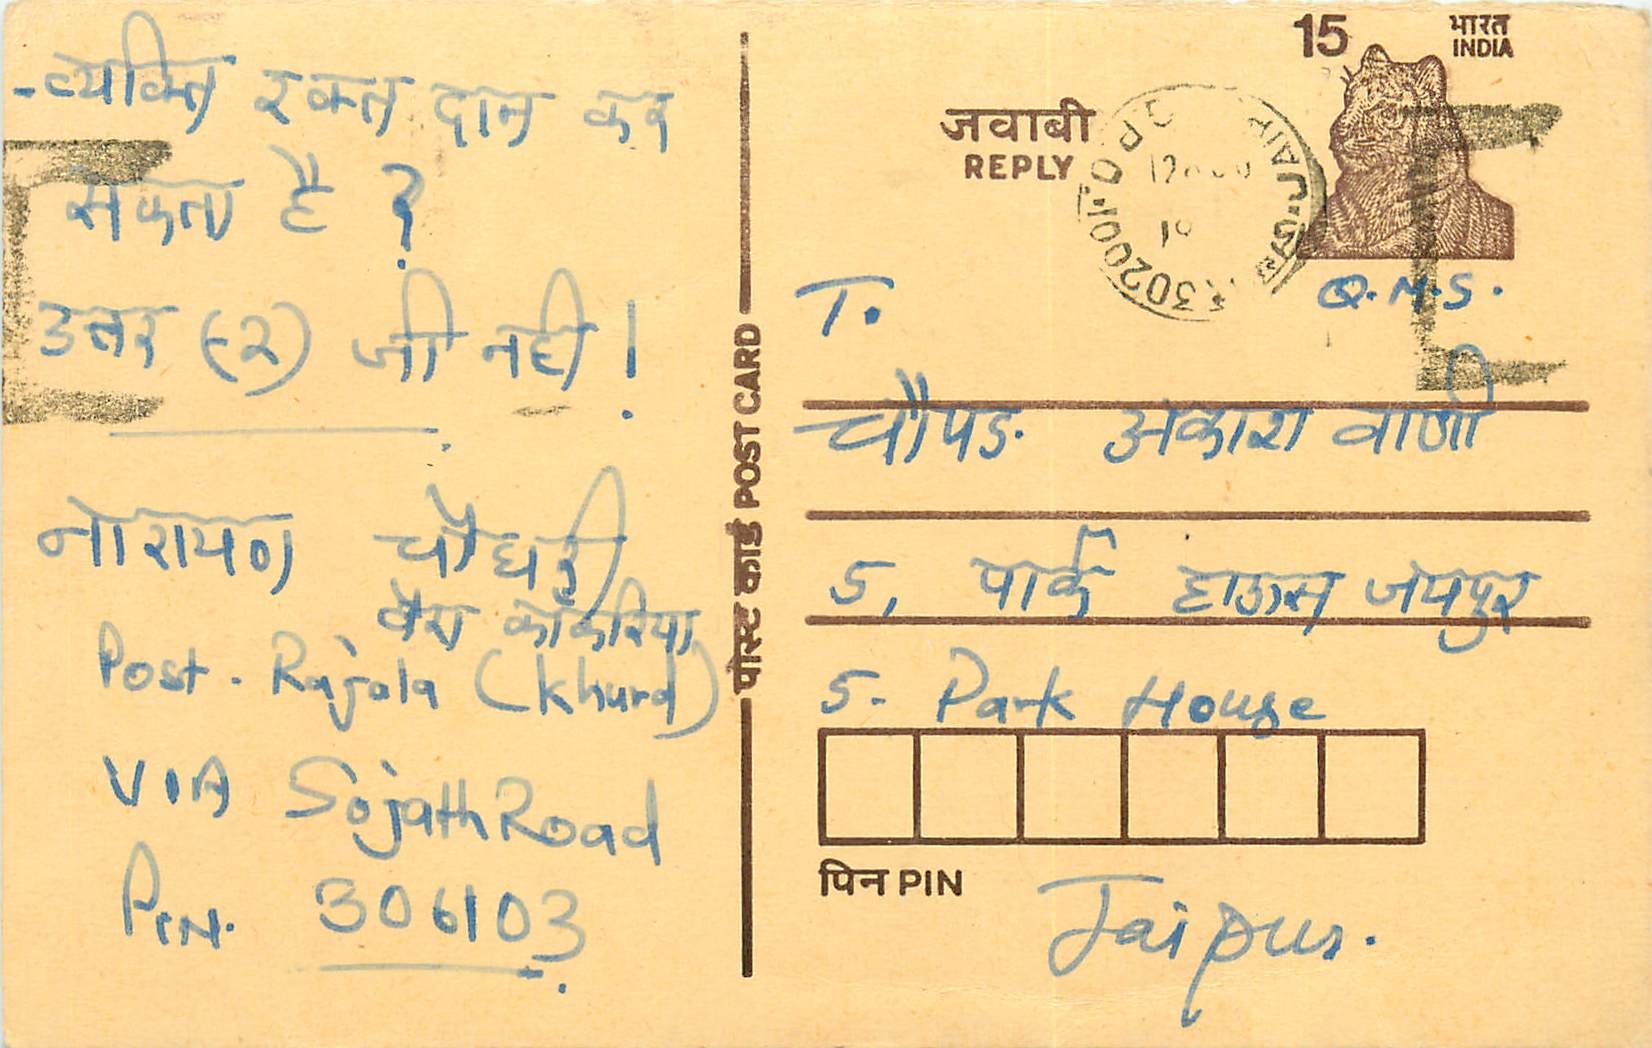 -व्यक्ति रक्त दान कर
सकता है ?
उत्तर (-२) जी नही !
नारायण चौधरी
Post. Rajola (Khurd)
VIA Sojath Road
PIN. 306103.
पोस्ट कार्ड POST CARD
15 भारत
INDIA
जवाबी
REPLY
302001
T. Q.M.S.
चौपड. अकाश वाणी
5, पार्क हाऊस जयपुर
5. Park House
पिन PIN
Jaipur.